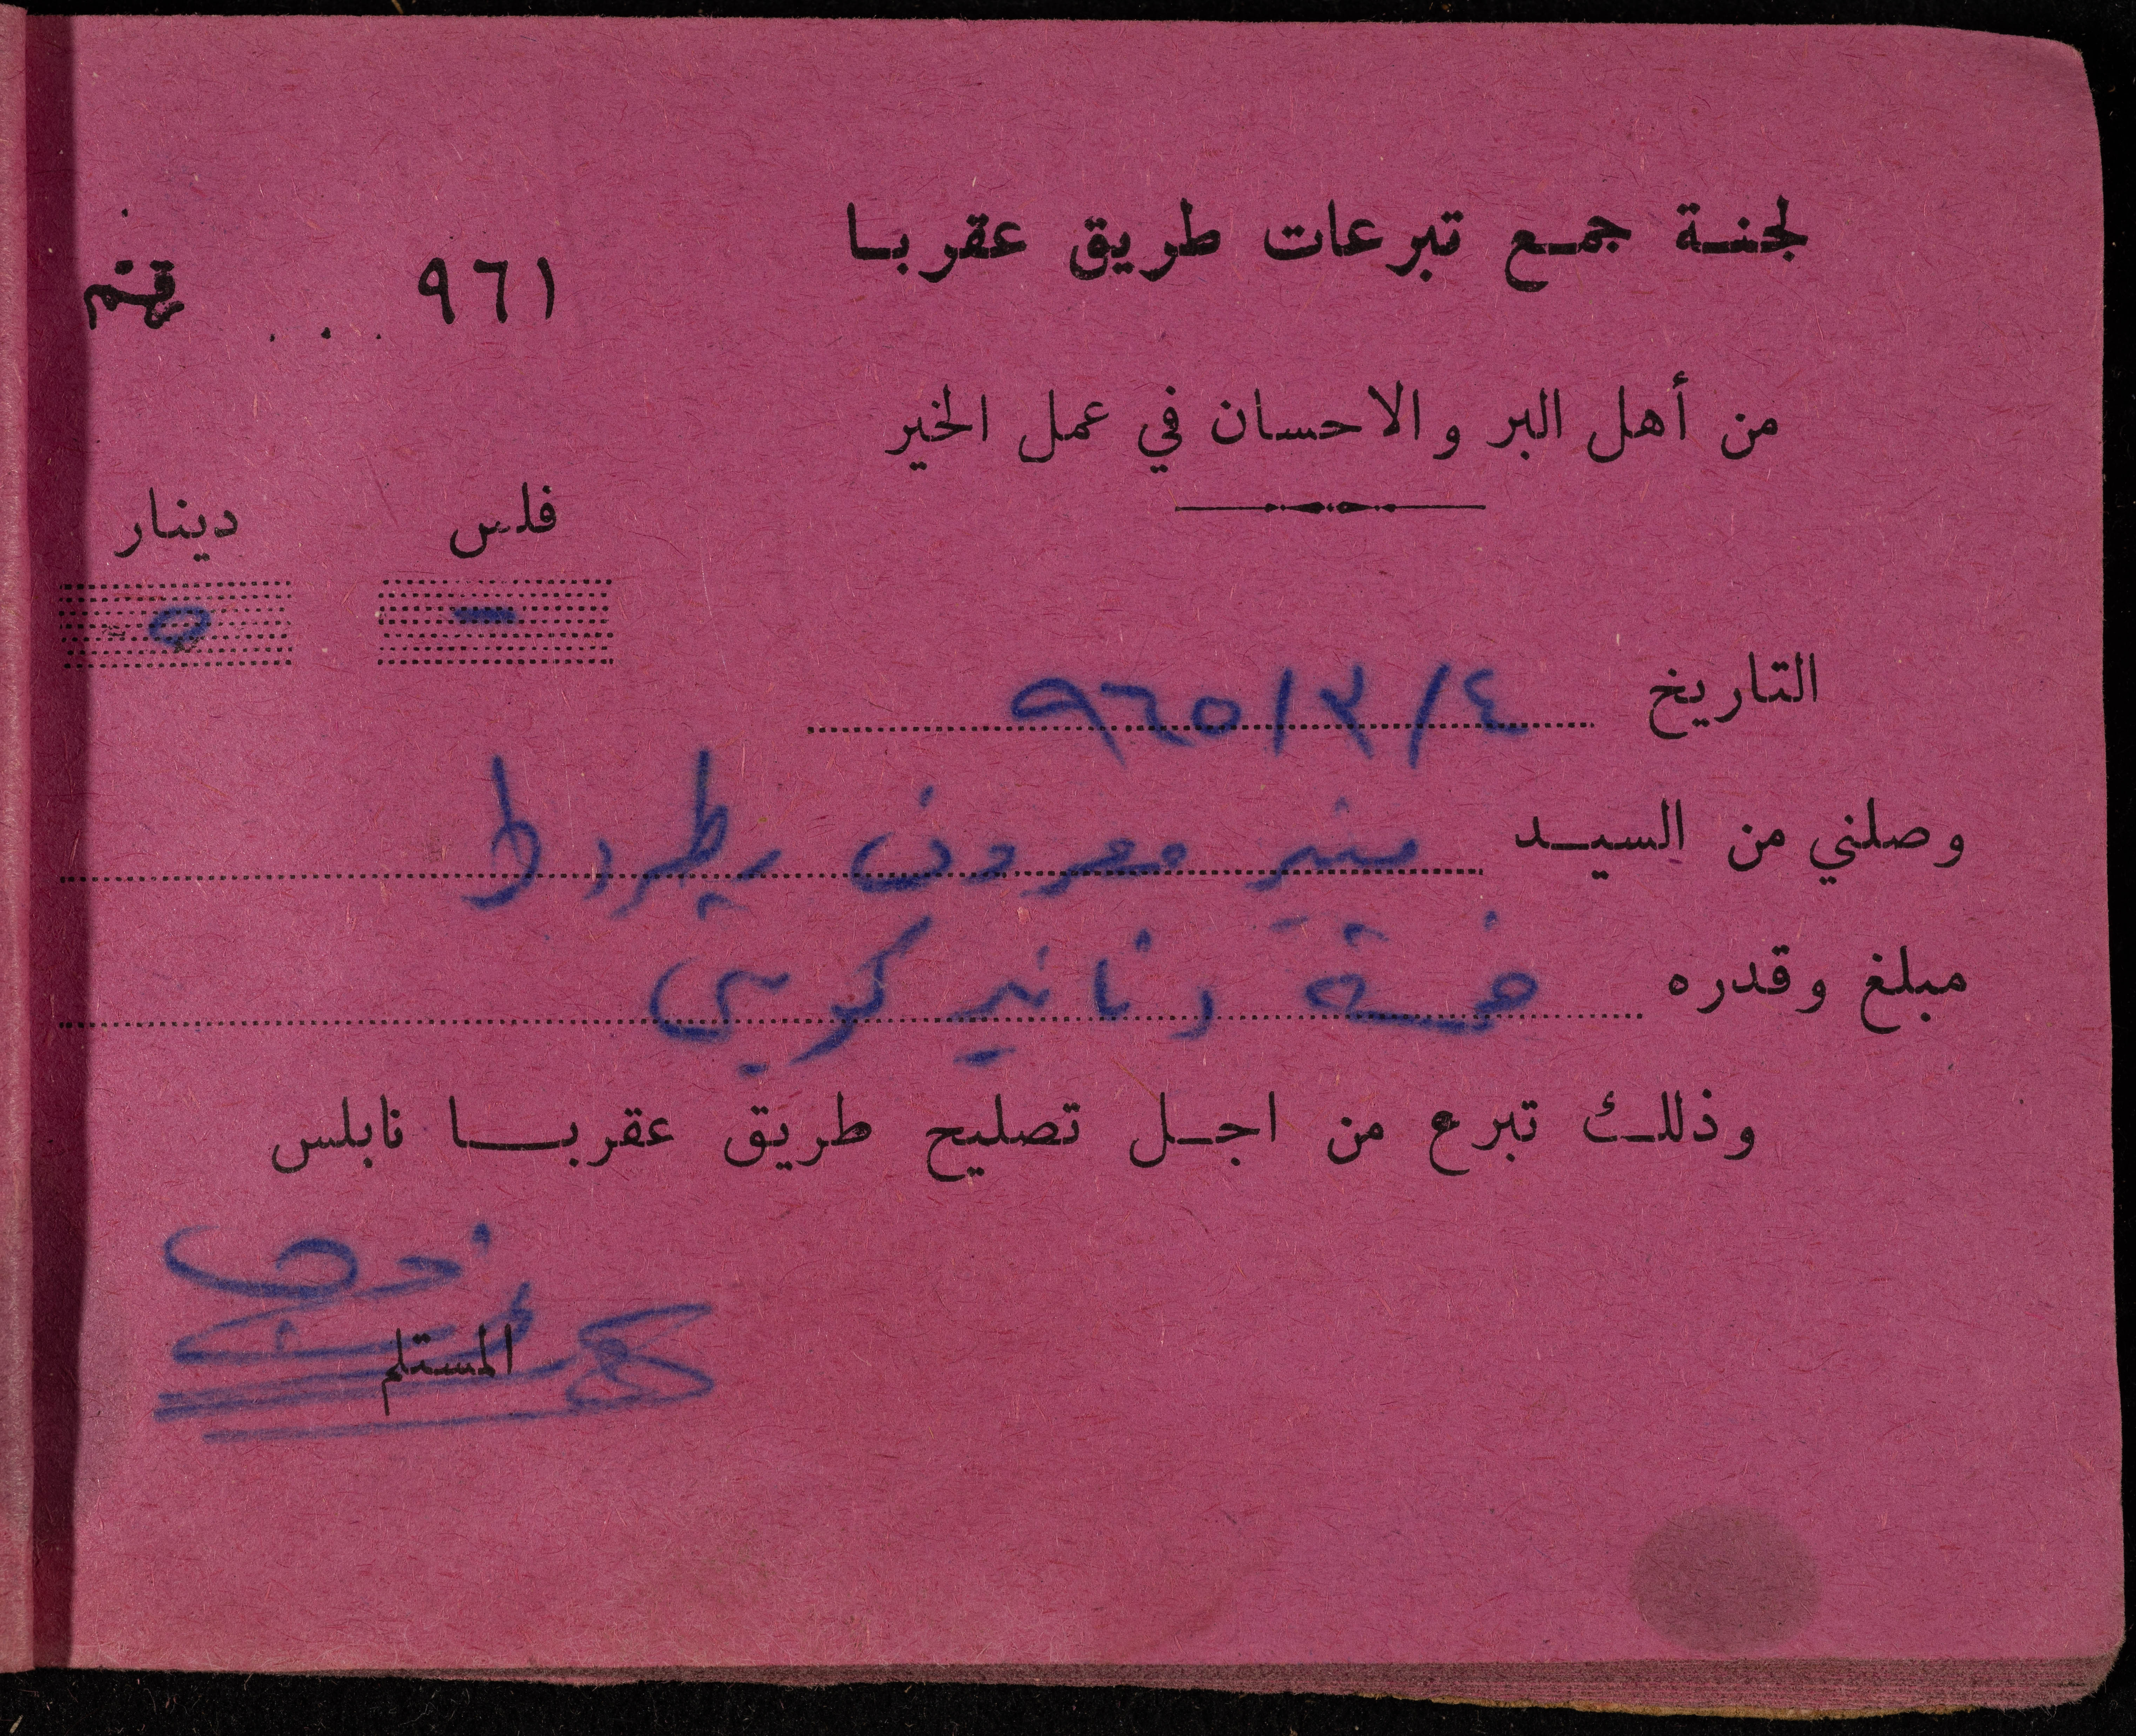 لجنة جمع تبرعات طريق عقربا
٩٦١
من أهل البر والاحسان في عمل الخير
فلس دينار
- ٥
التاريخ ٤/٣/٩٦٥
وصلني من السيد منير معروف
مبلغ وقدره خمسة دنانير
وذلك تبرع من اجل تصليح طريق عقربا نابلس
المستلم